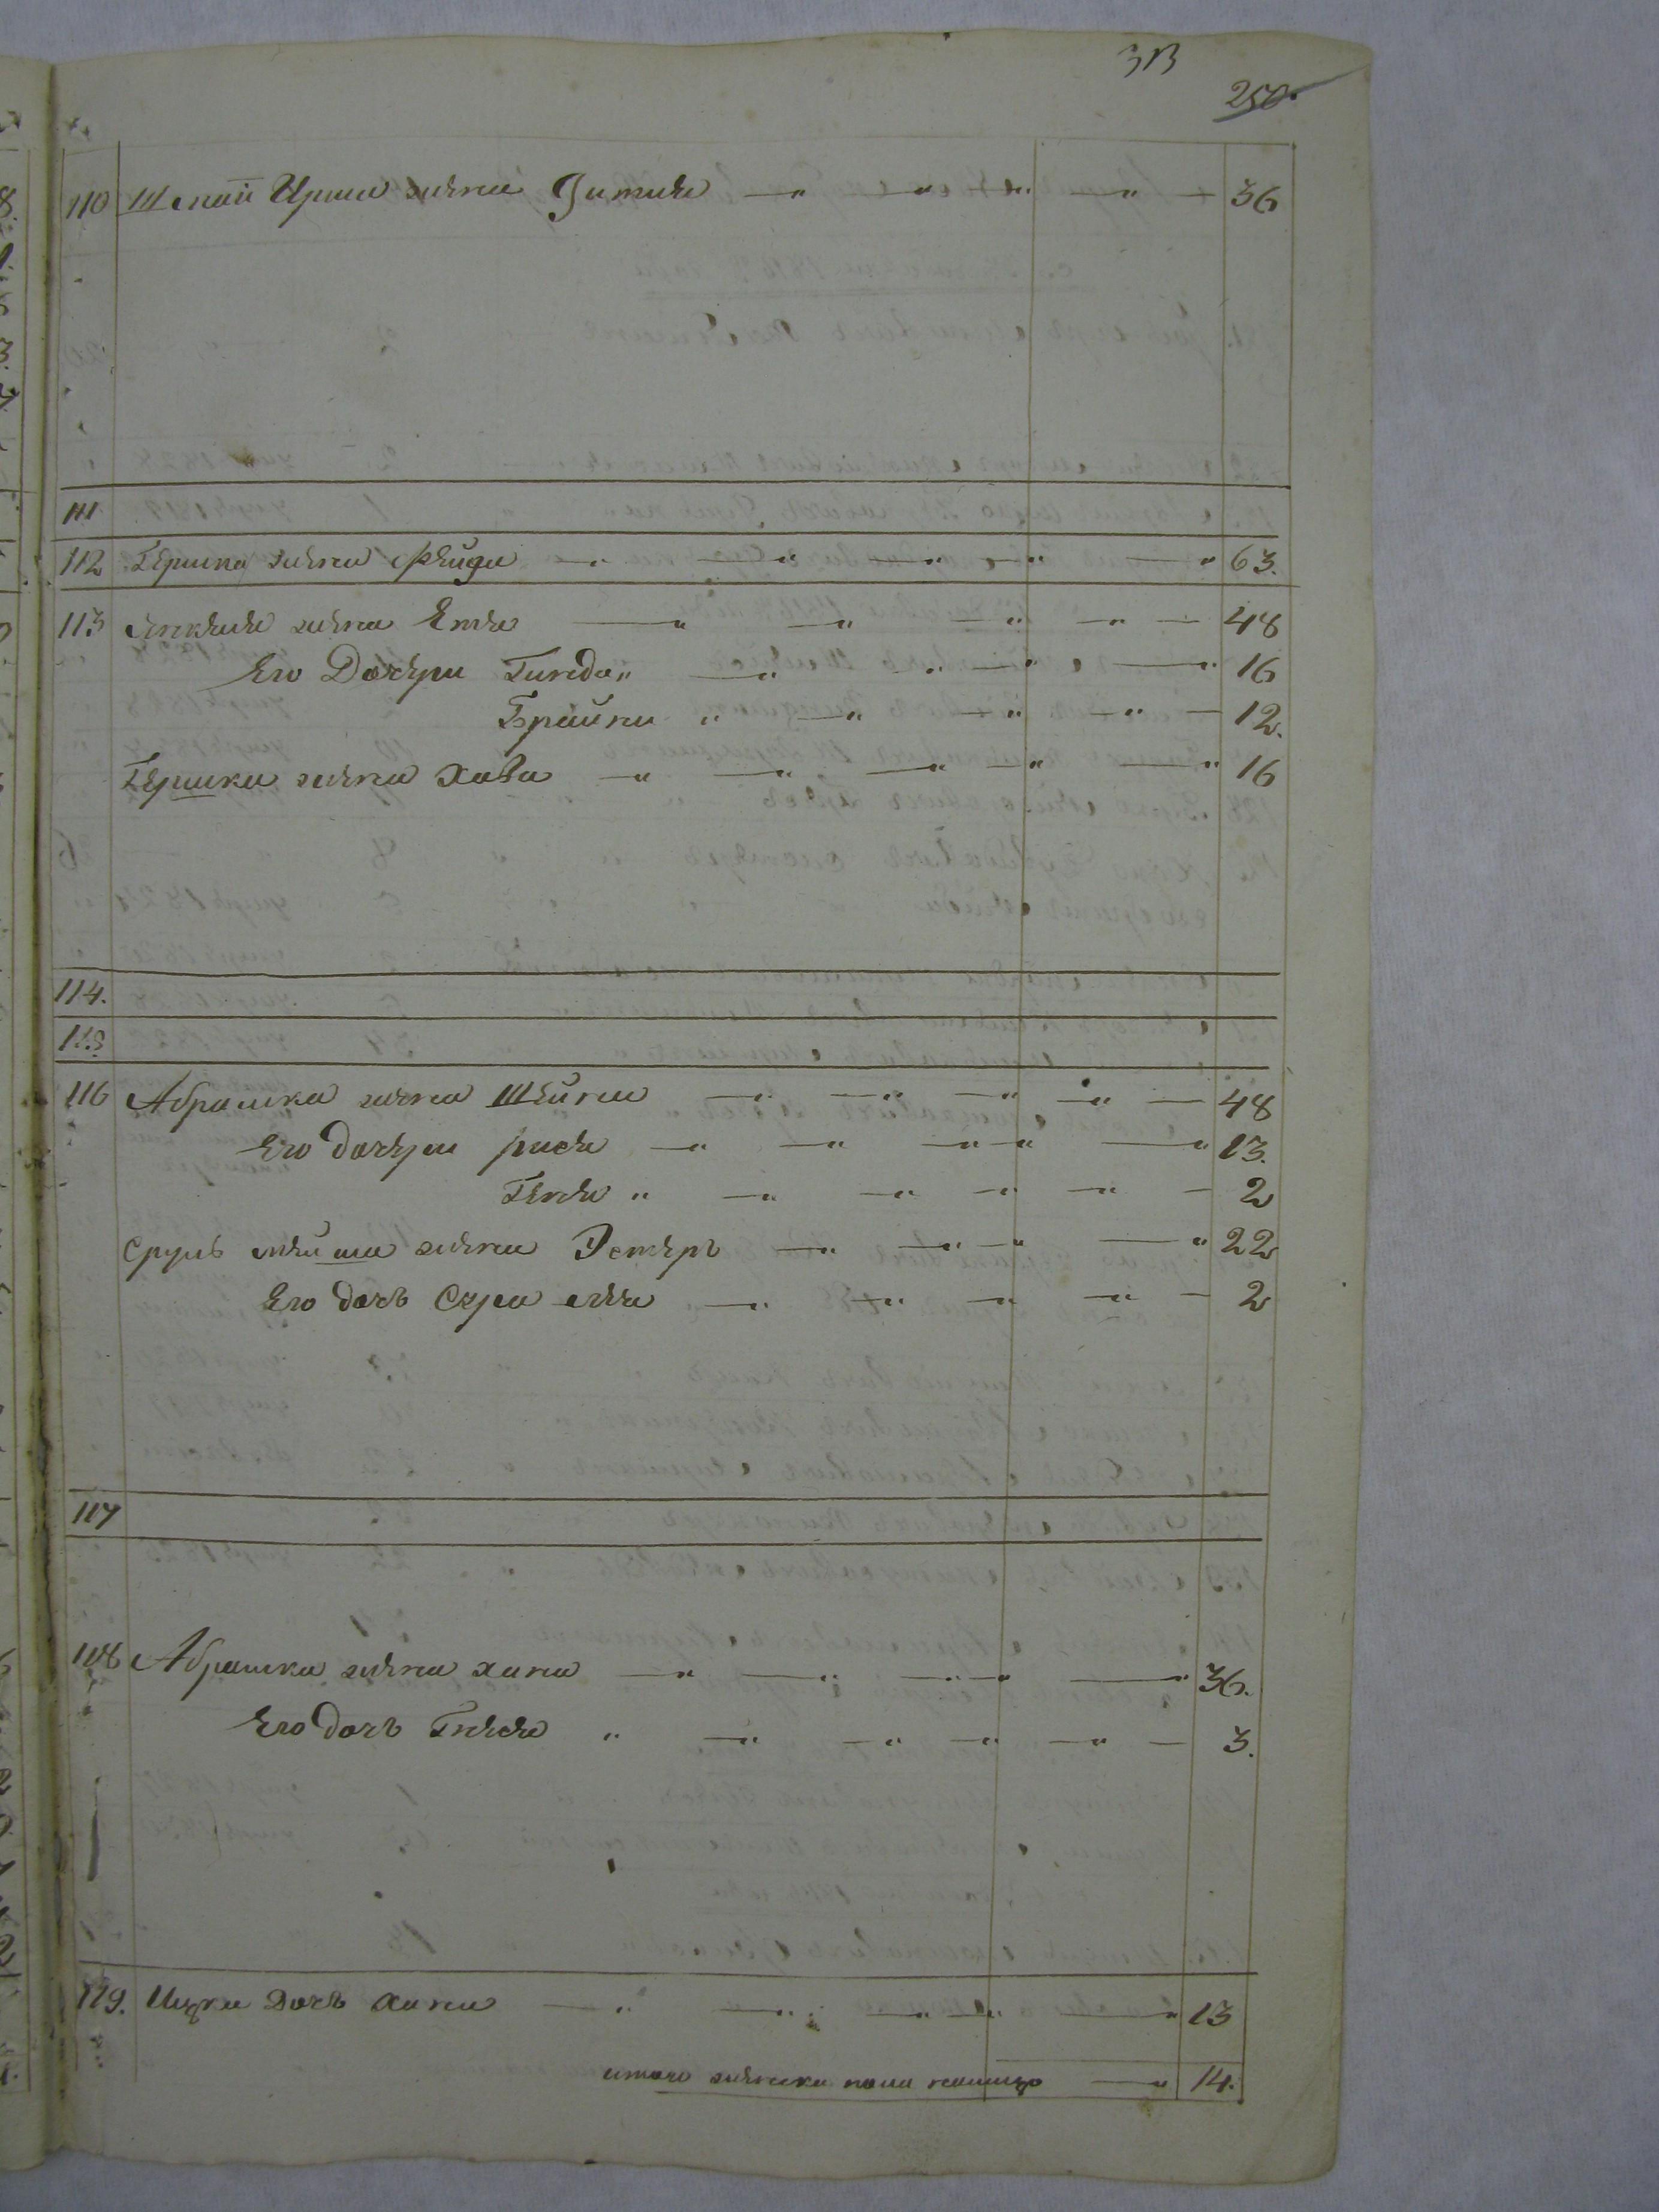 313
250.
110 Шмай Ирша жена Гитля — " — " — " — " — 36
111
112 Гершка жена Фейга — " — " — " — " — " 63.
113 жена Етля — " — " — " — " — 48
Его Дочери Гинда " — " — " — " — " 16
Брайна " — " — " — " — 12.
Гершка жена Хава — " — " — " — " — " 16
114.
115
116 Абрамка жена Шейна — " — " — " — " — 48
Его дочери рися — " — " — " — " — " 13.
Геня " — " — " — " — " — 2
Сруль мейша жена Эстеръ — " — " — " — " 22
Его дочь Сура — " — " — " — " — 2
117
118 Абрамка жена хана — " — " — " — " 36.
Его дочь " — " — " — " — " — 3.
119. Ицка Дочь хана — " — " — " — " 13
итого женска пола налицо — " 14.